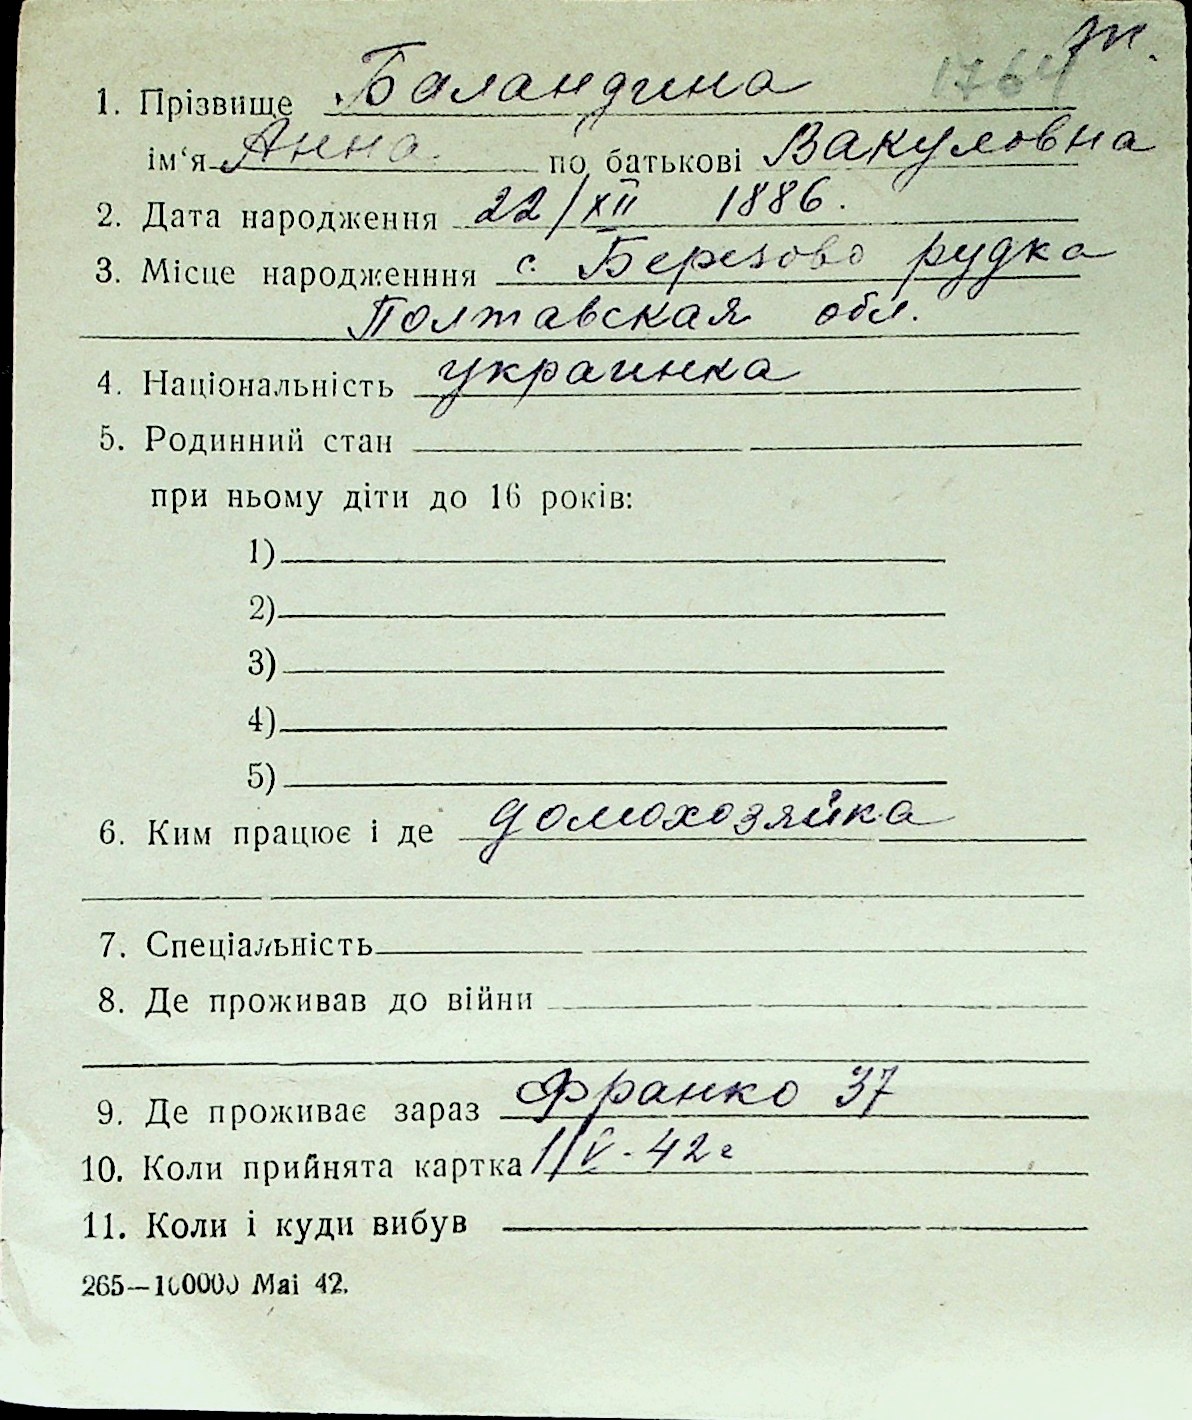 ж.
1764
1. Прізвище Баландина
ім‘я Анна по батькові Вакуловна
2. Дата народження 22/XII 1886.
3. Місце народженння с. Березово рудка
Полтавская обл.
4. Національність украинка
5. Родинний стан
при ньому діти до 16 років:
1)
2)
3)
4)
5)
6. Ким працює і де домохозяйка
7. Спеціальність
8. Де проживав до війни
9. Де проживає зараз Франко 37
10. Коли прийнята картка 1/V-42г
11. Коли і куди вибув
265—100000 Mai 42.